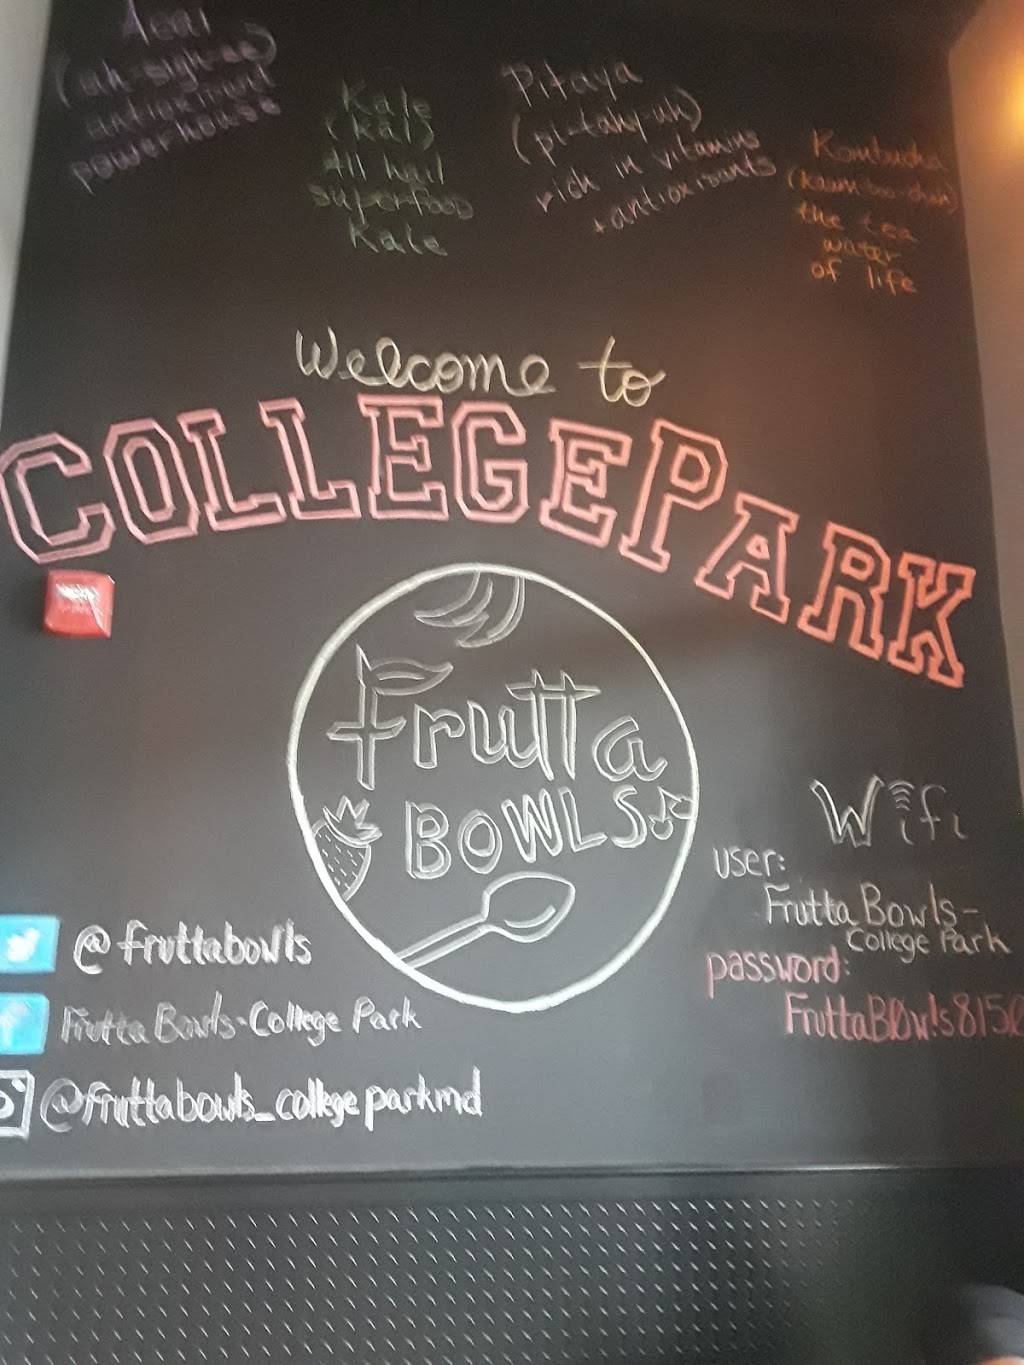 Acai
(ah-sigh-ee)
antioxidant
powerhouse
Kale
(kal)
All hail
superfood
Kale
Pitaya
(pi-tahy-uh)
rich in vitamins
+ antioxidants
Kombucha
the tea
water
of life
Welcome to
COLLEGE PARK
Frutta
BOWLS
Wifi
user:
Frutta Bowls-
College Park
password:
FruttaB0wls8150
@fruttabowls
Frutta Bowls-College Park
@fruttabowls_collegeparkmd